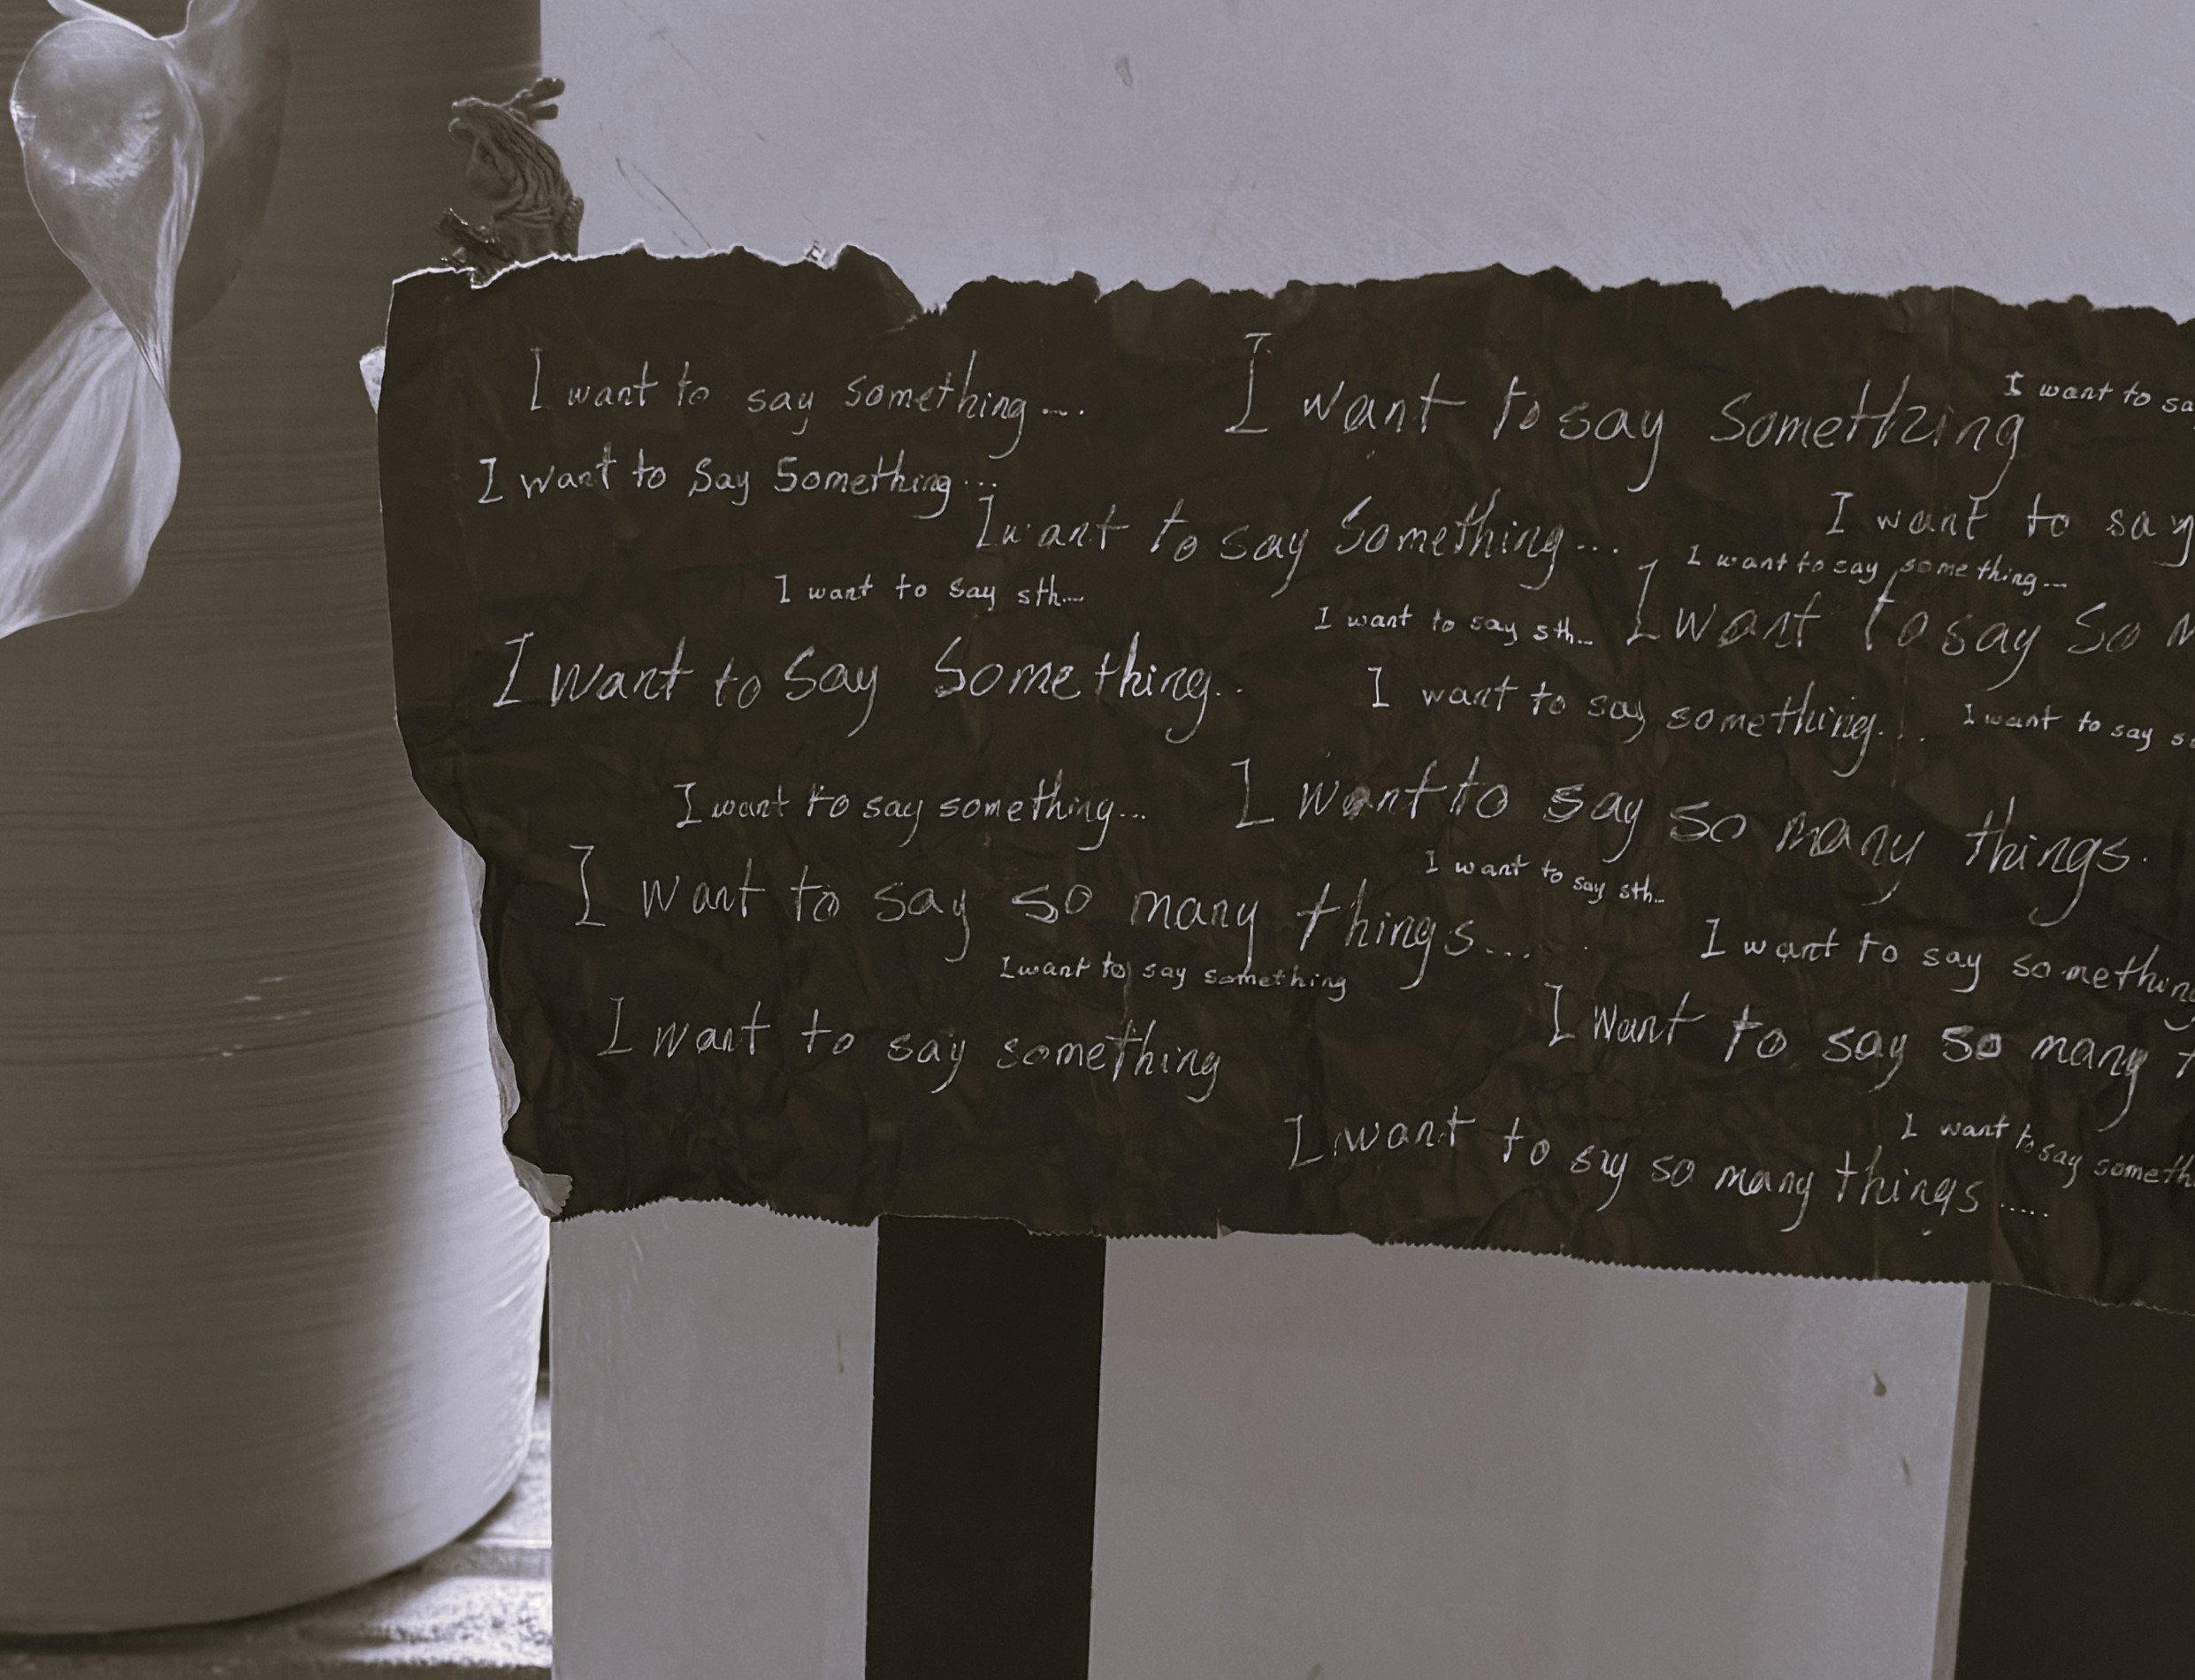 I want to say something...
I want to say something
I want to
I want to say something...
I want to say
I want to say something...
I want to say something...
I want to say sth...
I want to say sth...
I want to say so
I want to say something..
I want to say something...
I want to say
I want to say something...
I want to say so many things.
I want to say sth...
I want to say so many things....
I want to say something
I want to say something
I want to say something
I want to say so many
I want to say so many things.....
I want to say